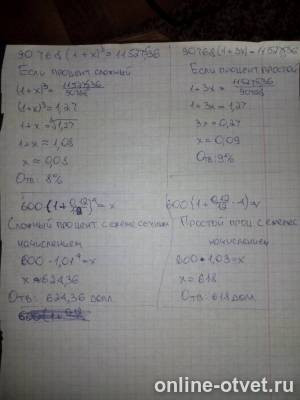 90768(1+x)³=115275,36
Если процент сложный
(1+x)³=115275,36/90768
(1+x)³=1,27
1+x=³√1,27
1+x≈1,08
x≈0,08
Отв: 8%
90768(1+3x)=115275,36
Если процент простой
1+3x=115275,36/90768
1+3x=1,27
3x=0,27
x=0,09
Отв: 9%
600(1+0,12/12)⁴=x
Сложный процент с ежемесячным
начислением
600·1,01⁴=x
x≈624,36
Отв: 624,36 долл
Простой проц с ежемес
начислением
600·1,03=x
x=618
Отв: 618 долл.
online-otvet.ru